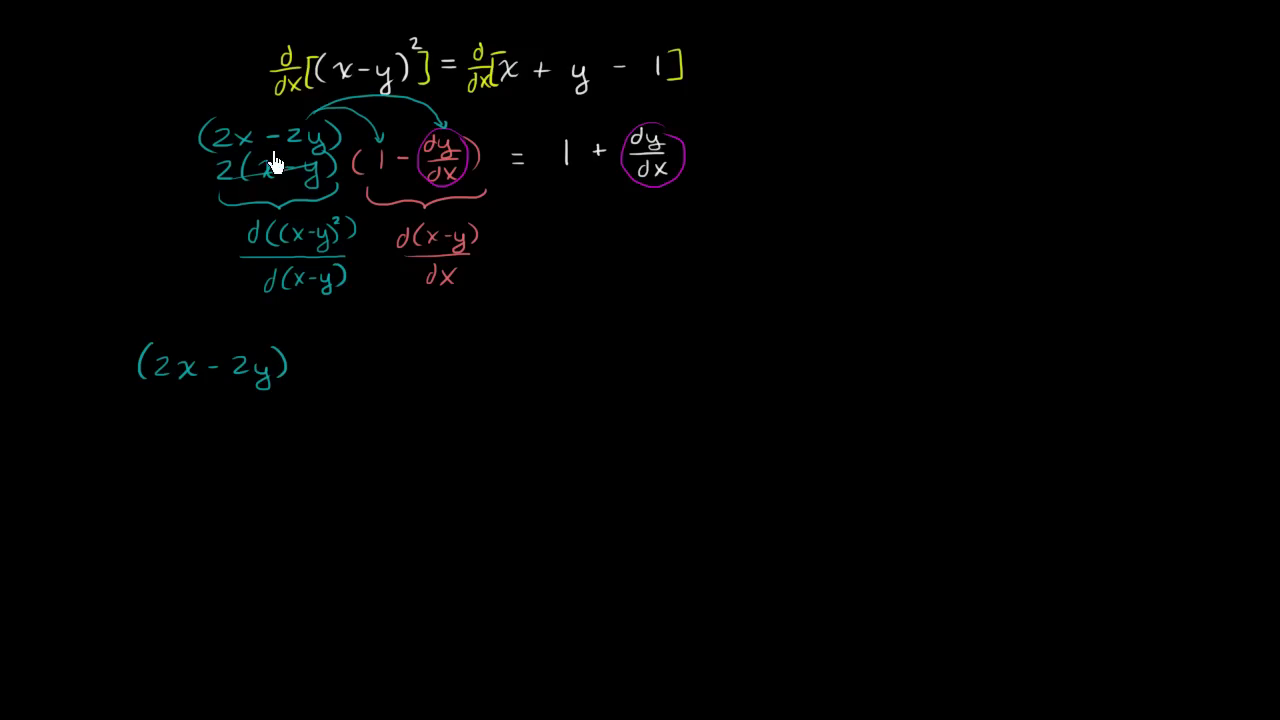 d/dx[(x-y)²] = d/dx[x + y - 1]
(2x - 2y)
2(x-y) (1 - dy/dx) = 1 + dy/dx
d((x-y)²)/d(x-y) d(x-y)/dx
(2x - 2y)